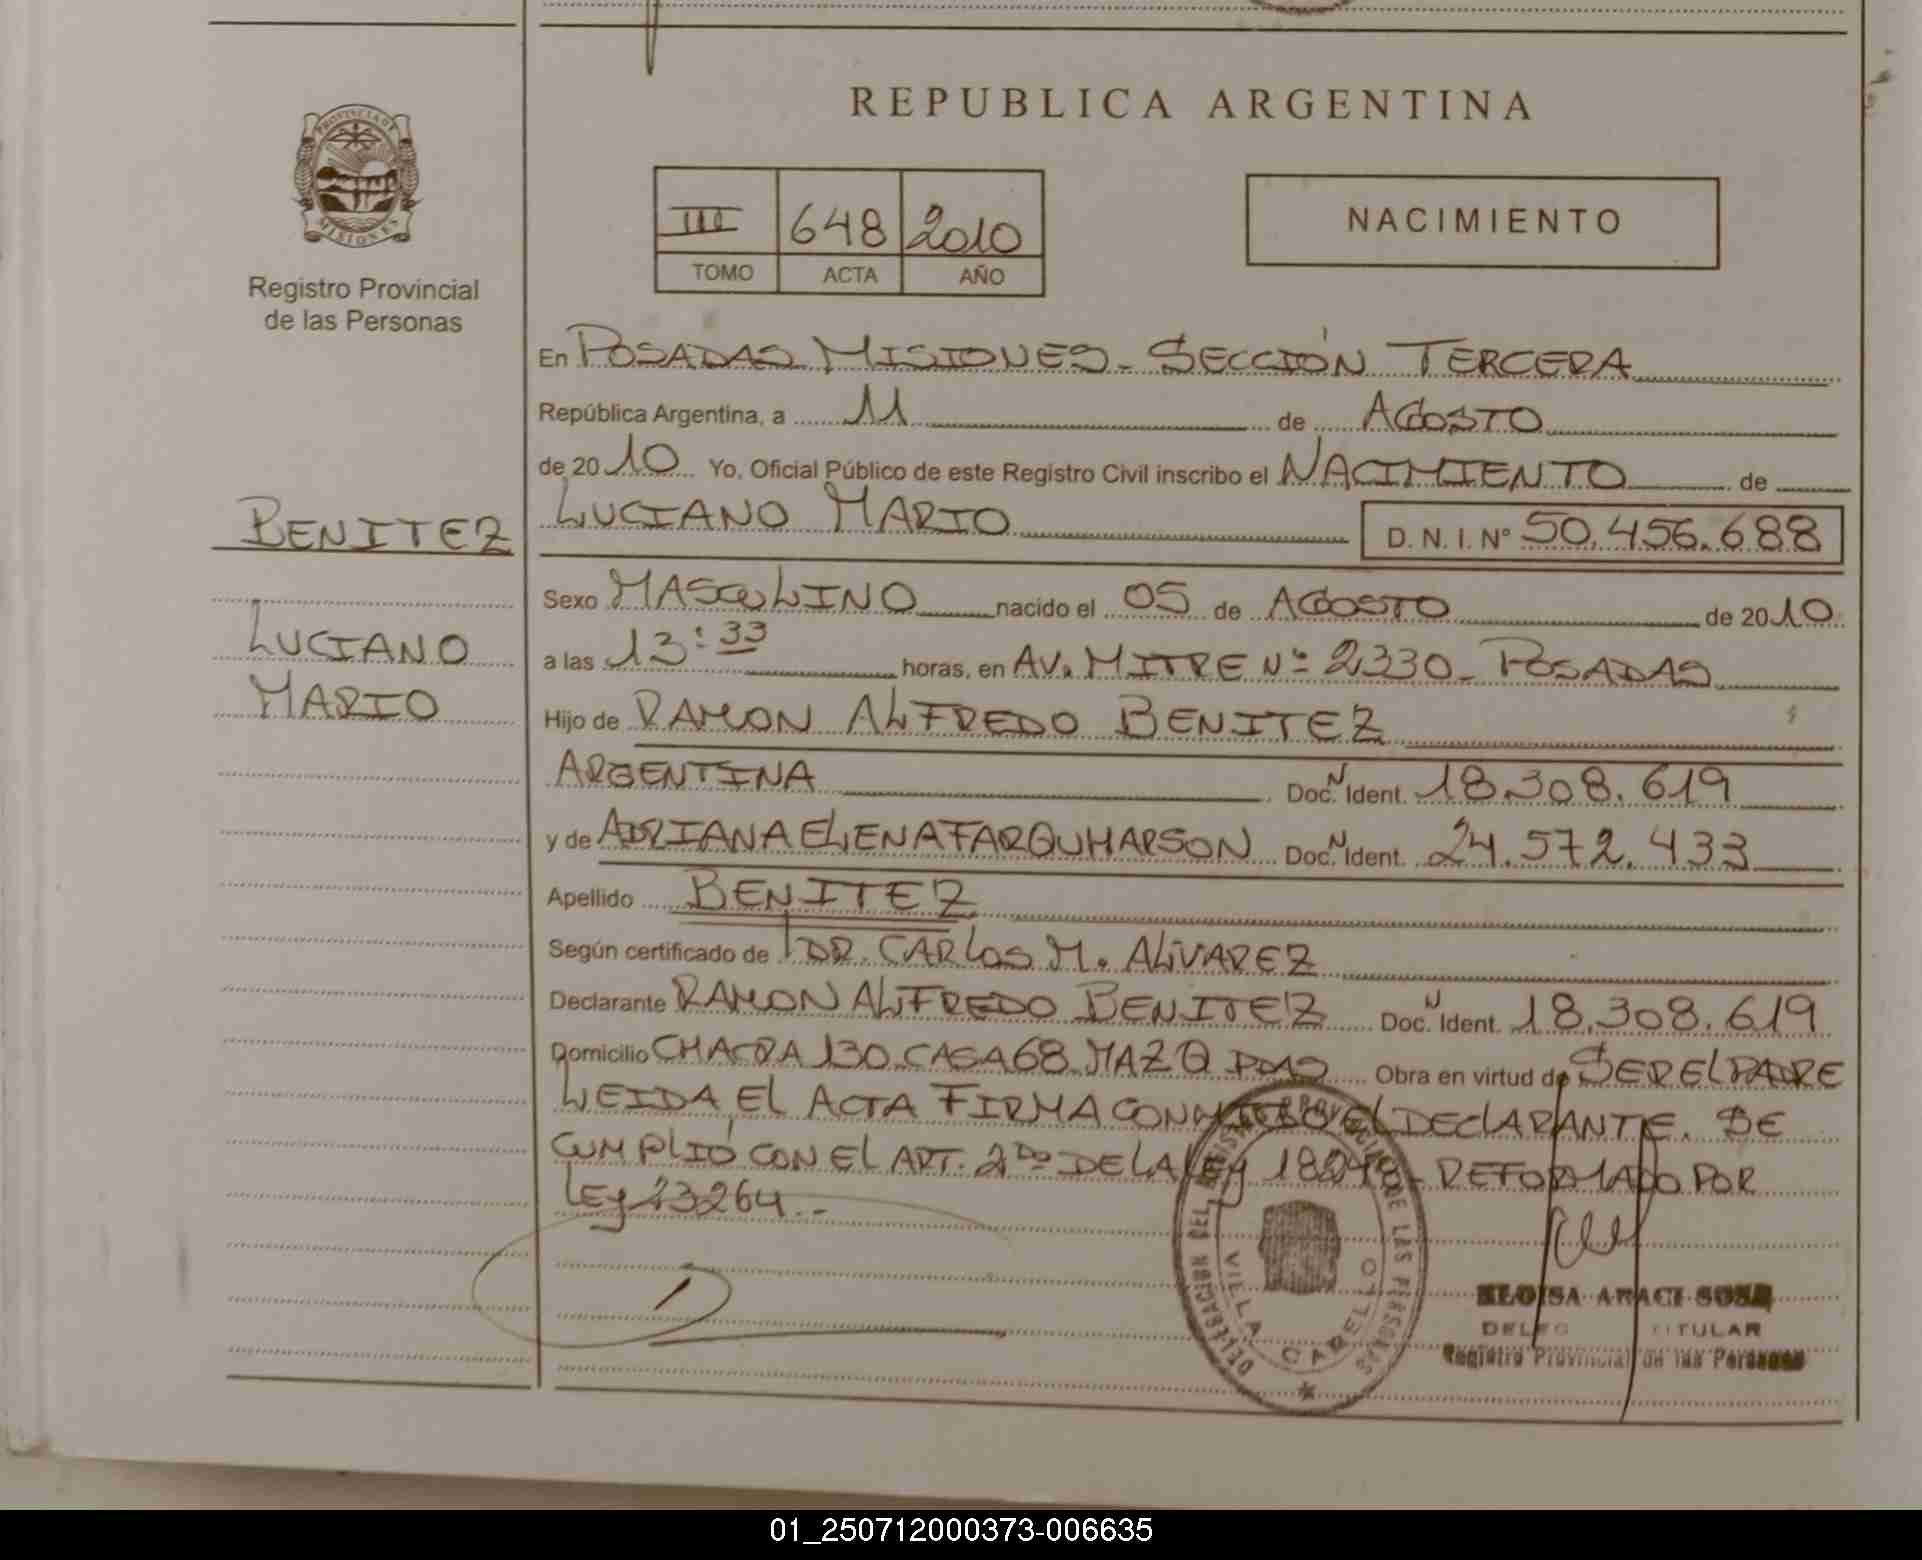 REPUBLICA ARGENTINA
PROVINCIA DE
MISIONES
Registro Provincial
de las Personas
III 648 2010
TOMO ACTA AÑO
NACIMIENTO
En POSADAS MISIONES - SECCIÓN TERCERA
República Argentina, a 11 de AGOSTO
de 2010 Yo, Oficial Público de este Registro Civil inscribo el NACIMIENTO de
BENITEZ
LUCIANO MARIO D.N.I. N° 50.456.688
Sexo MASCULINO nacido el 05 de AGOSTO de 2010
LUCIANO
a las 13:33 horas, en AV. MITRE Nº 2330 - POSADAS
MARIO
Hijo de RAMON ALFREDO BENITEZ
ARGENTINA Doc. N Ident. 18.308.619
y de ADRIANA ELENA FARQUHARSON Doc. N Ident. 24.572.433
Apellido BENITEZ
Según certificado de DR. CARLOS M. ALVAREZ
Declarante RAMON ALFREDO BENITEZ Doc. N Ident. 18.308.619
Domicilio CHACRA 130 CASA 68 MAZ Q PDAS Obra en virtud de SER EL PADRE
LEIDA EL ACTA FIRMA CONMIGO EL DECLARANTE. SE
CUMPLIÓ CON EL ART. 2DO DE LA LEY 18248 - REFORMADO POR
LEY 23264.-
DELEGACION DEL REGISTRO PROVINCIAL DE LAS PERSONAS
VILLA CABELLO
ELOISA ARACI SOSA
TITULAR
Registro Provincial de las Personas
01_250712000373-006635